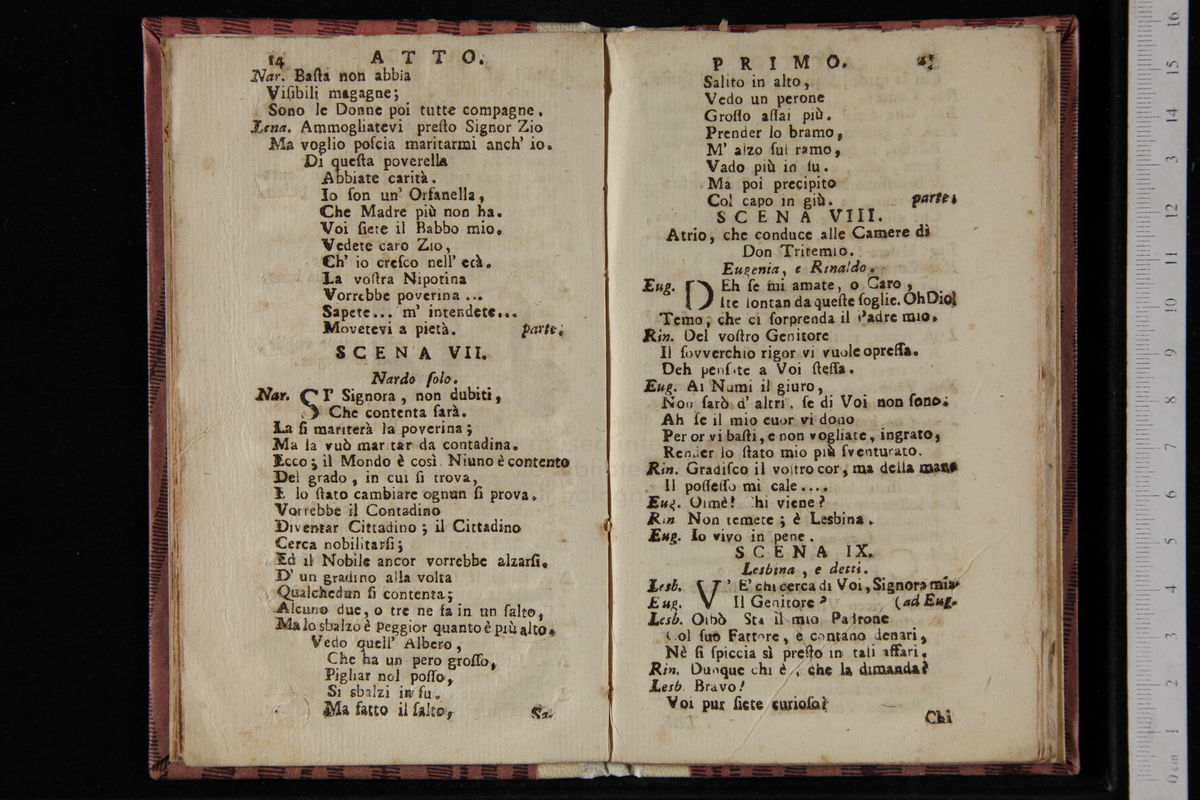 14 ATTO.
Nar. Baſta non abbia
Viſibili magagne;
Sono le Donne poi tutte compagne.
Lena. Ammogliatevi preſto Signor Zio
Ma voglio poſcia maritarmi anch' io.
Di queſta poverella
Abbiate carità.
Io ſon un' Orfanella,
Che Madre più non ha.
Voi ſiete il Babbo mio.
Vedete caro Zio,
Ch' io creſco nell' età.
La voſtra Nipotina
Vorrebbe poverina ...
Sapete... m' intendete...
Movetevi a pietà. parte.
SCENA VII.
Nardo ſolo.
Nar. SI' Signora, non dubiti,
Che contenta ſarà.
La ſi mariterà la poverina;
Ma la vuò maritar da contadina.
Ecco; il Mondo è così. Niuno è contento
Del grado, in cui ſi trova,
E lo ſtato cambiare ognun ſi prova.
Vorrebbe il Contadino
Diventar Cittadino; il Cittadino
Cerca nobilitarſi;
Ed il Nobile ancor vorrebbe alzarſi.
D' un gradino alla volta
Qualchedun ſi contenta;
Alcuno due, o tre ne fa in un ſalto,
Ma lo sbalzo è peggior quanto è più alto.
Vedo quell' Albero,
Che ha un pero groſſo,
Pigliar nol poſſo,
Si sbalzi in ſu.
Ma fatto il ſalto,
Sa-
PRIMO.
Salito in alto,
Vedo un perone
Groſſo aſſai più.
Prender lo bramo,
M' alzo ſul ramo,
Vado più in ſu.
Ma poi precipito
Col capo in giù. parte.
SCENA VIII.
Atrio, che conduce alle Camere di
Don Tritemio.
Eugenia, e Rinaldo.
Eug. DEh ſe mi amate, o Caro,
Ite lontan da queſte ſoglie. Oh Dio!
Temo, che ci ſorprenda il Padre mio.
Rin. Del voſtro Genitore
Il ſovverchio rigor vi vuole opreſſa.
Deh penſate a Voi ſteſſa.
Eug. Ai Numi il giuro,
Non ſarò d' altri, ſe di Voi non ſono.
Ah ſe il mio cuor vi dono
Per or vi baſti, e non vogliate, ingrato,
Render lo ſtato mio più ſventurato.
Rin. Gradiſco il voſtro cor, ma della mano
Il poſſeſſo mi cale....
Eug. Oimè! Chi viene?
Rin Non temete; è Lesbina.
Eug. Io vivo in pene.
SCENA IX.
Lesbina, e detti.
Lesb. V' E' chi cerca di Voi, Signora mia.
Eug. Il Genitore? (ad Eug.
Lesb. Oibò Sta il mio Padrone
Col ſuo Fattore, e contano denari,
Nè ſi ſpiccia sì preſto in tali affari.
Rin. Dunque chi è, che la dimanda?
Lesb. Bravo!
Voi pur ſiete curioſo?
Chi